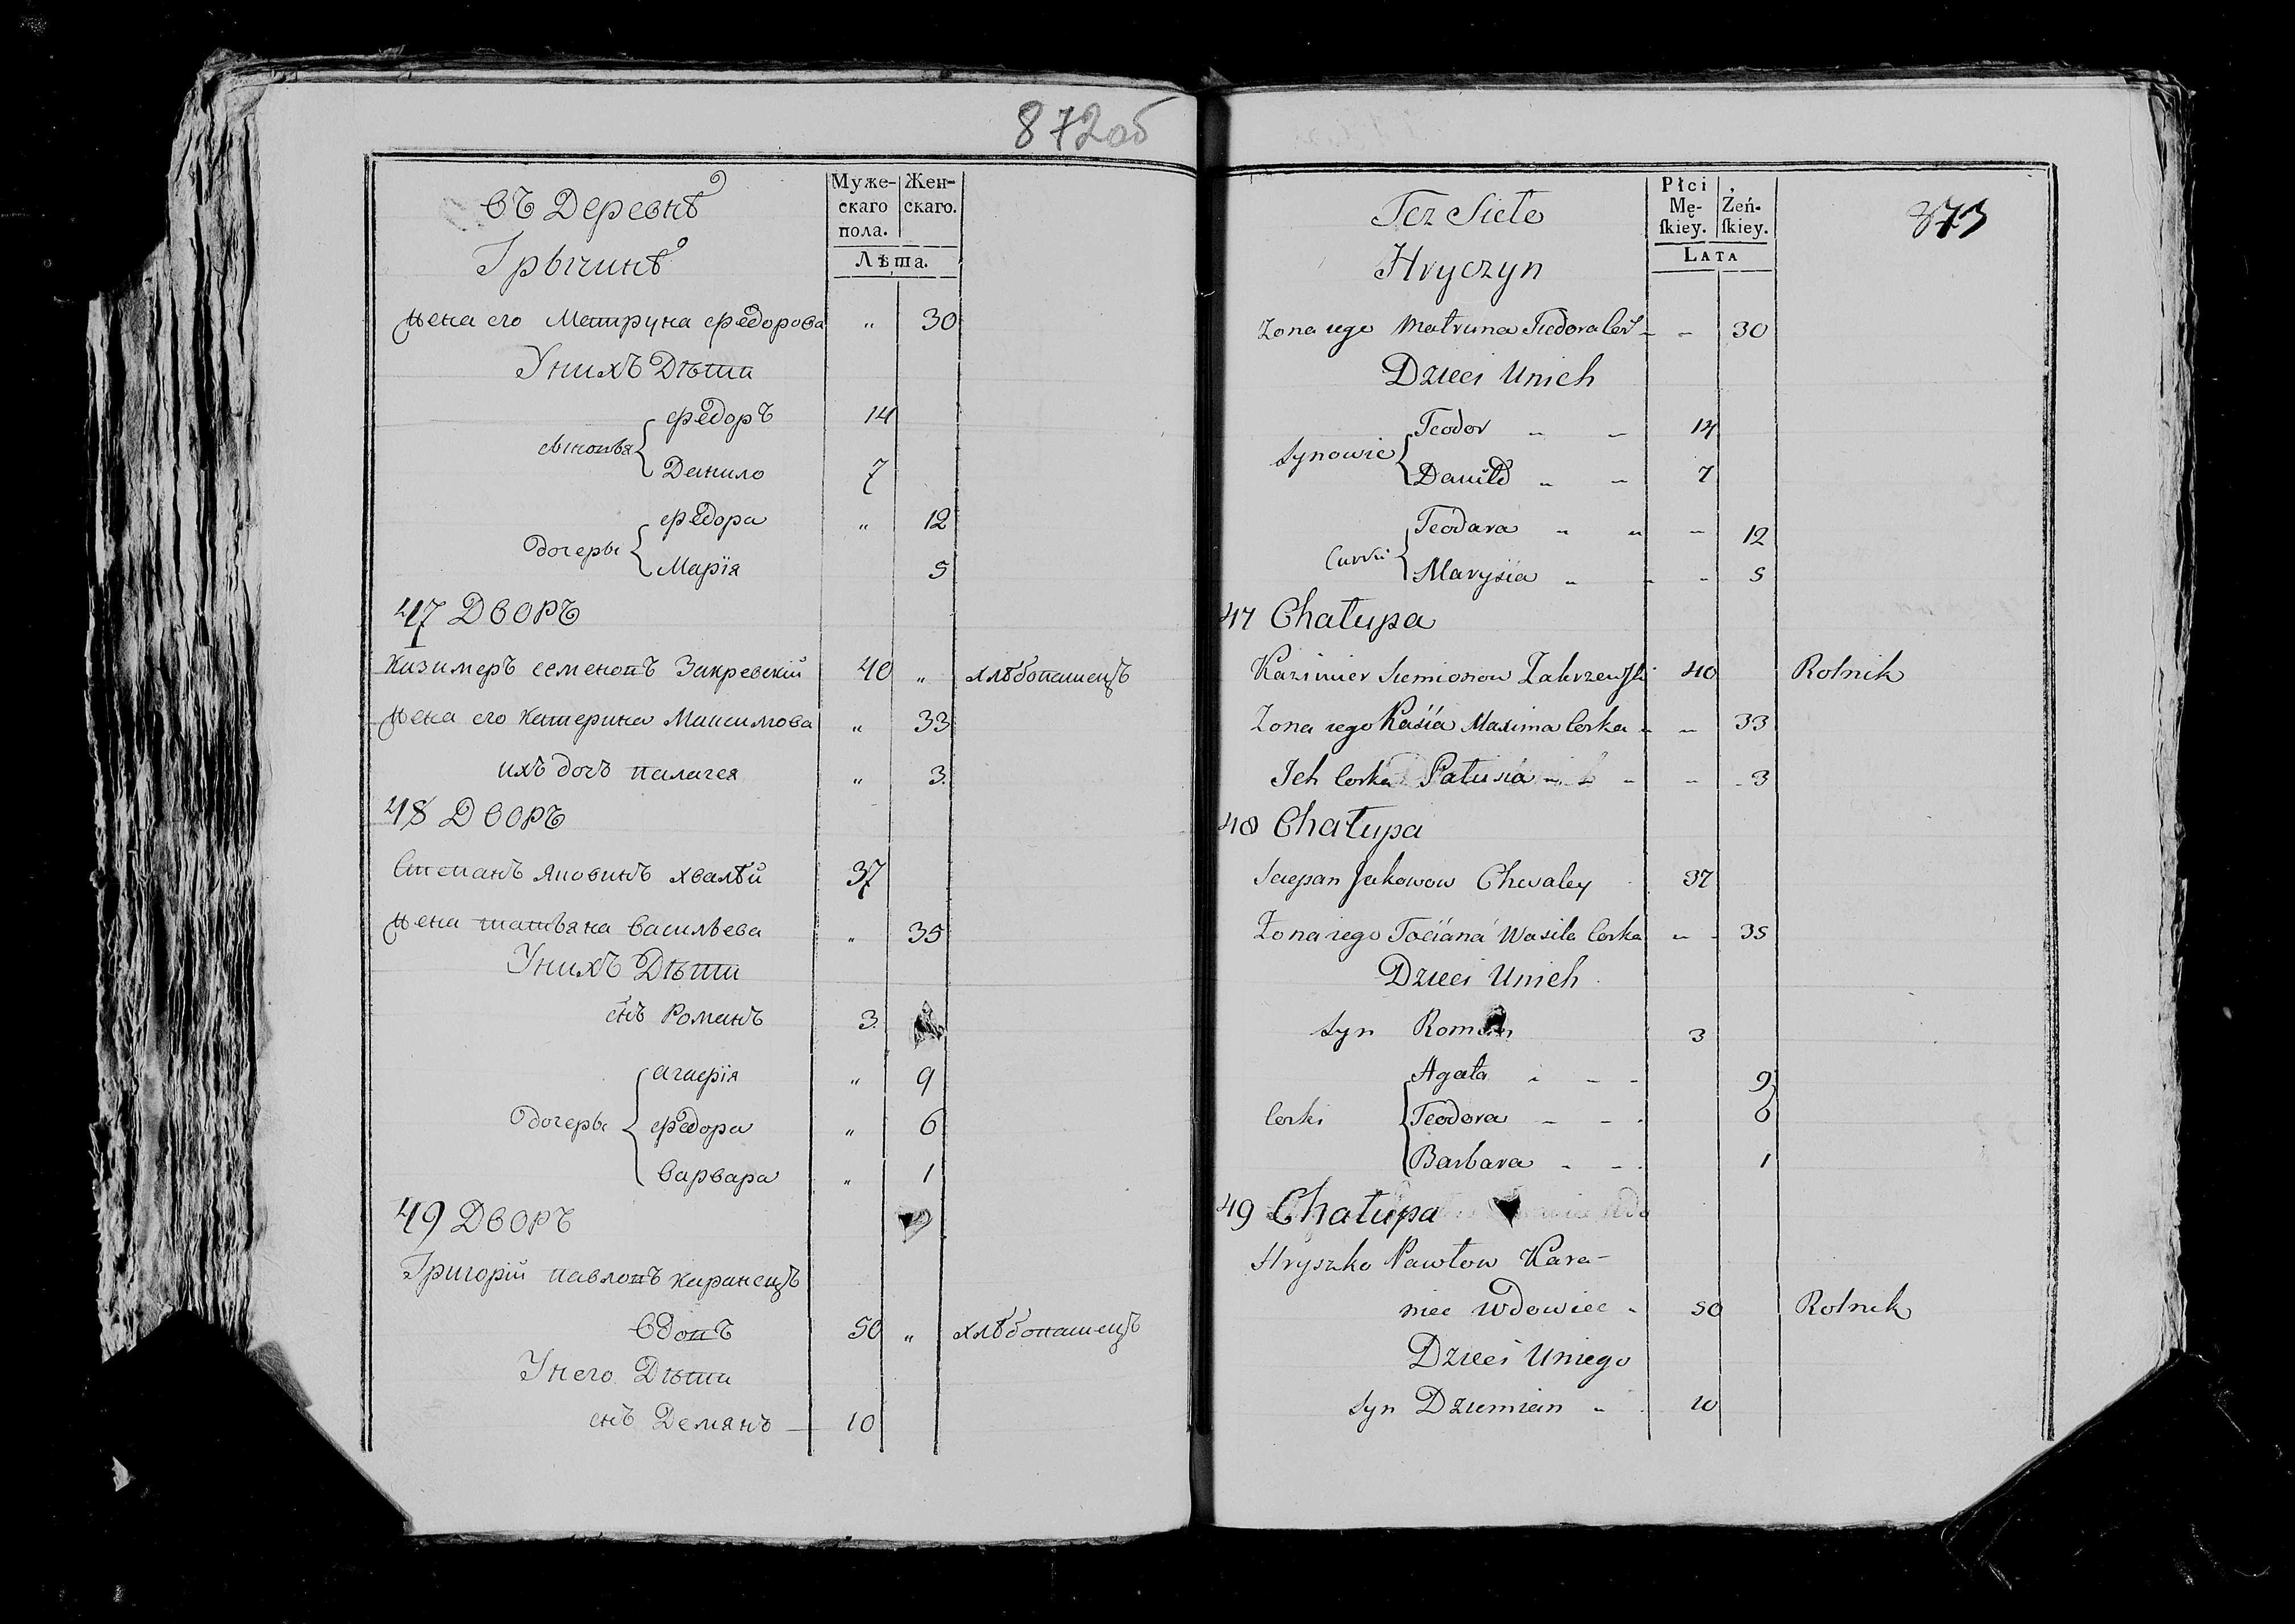 872об
въ Деревнѣ
Грычинѣ
Муже-
скаго
пола.
Жен-
скаго.
Лѣта.
жена его Матруна Федорова " 30
У нихъ Дѣти
сыновья
Федоръ 14
Данило 7
дочеры
Федора " 12
Марїя 5
47 Дворъ
Казимеръ Семеновъ Закревскій 40 " хлѣбопашецъ
жена его Катерина Максимова " 33
ихъ дочъ Палагея " 3
48 Дворъ
Степанъ Яковинъ Хвалѣй 37
жена Татьяна Васильева " 35
У нихъ Дѣти
снъ Романъ 3
дочеры
Агиерїя " 9
Федора " 6
Варвара " 1
49 Дворъ
Григорій Павловъ Каранецъ
Вдовъ 50 " хлѣбопашецъ
У него Дѣти
снъ Демянъ — 10
Tez Sieło
Hryczyn
Płci
Mę-
skiey.
Żeń-
skiey.
LATA
873
Zona iego Matruna Fiedora Cor - - 30
Dzieci Unich
Synowie
Teodor - - 14
Daniło - - 7
Curki
Teodara - - - 12
Marysia - - - 5
47 Chałupa
Kazimier Siemionow Zakrzewski 40 Rolnik
Zona iego Kasia Maxima Corka - - 33
Ich Corka Palusia - - - - 3
48 Chałupa
Sciepan Jakowow Chwaley 37
Zona iego Taciana Wasila Corka - - 35
Dzieci Unich
Syn Roman 3
Corki
Agata - - - 9
Teodora - - - 6
Barbara - - - 1
49 Chałupa
Hryszko Pawłow Kara-
niec Wdowiec - 50 Rolnik
Dzieci Uniego
Syn Dziemian - 10